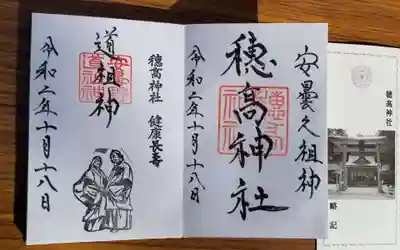 安曇之祖神
穂高神社
令和二年十月十八日
穂高神社 健康長寿
道祖神
令和二年十月十八日
穂高神社
略記